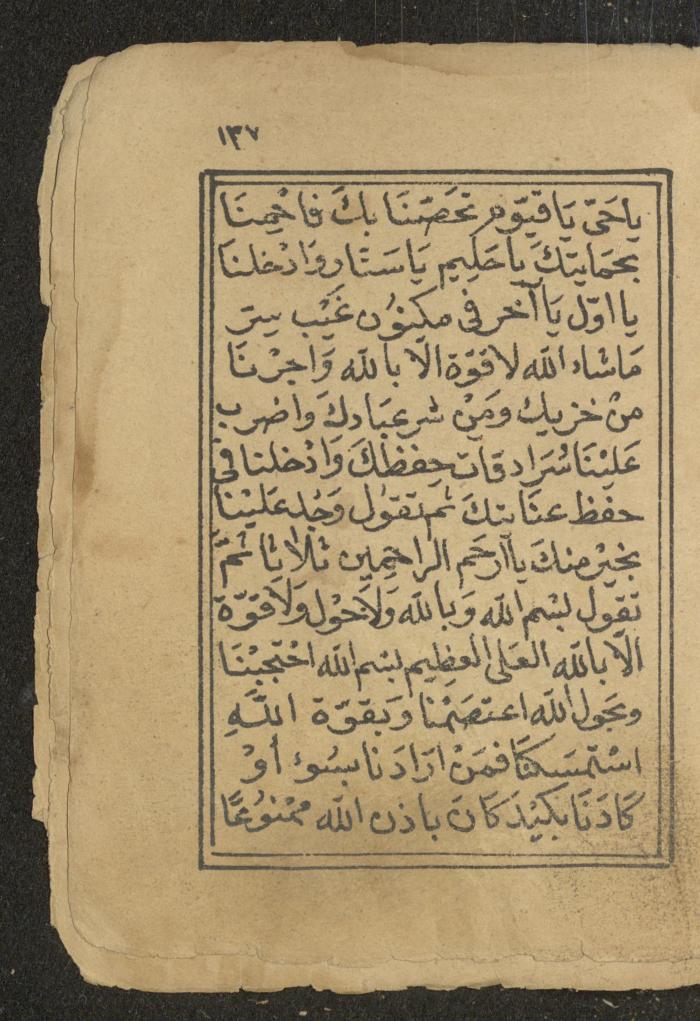 ١٣٧
ياحَىّ يَا قيّوم تحَصّنَنا بكَ فاحْمِنَا
بحَمايتكَ ياحَلِيم يَاسَتّار وَادْخلنَا
يا اوّل يَا آخر فى مكنوُن غَيْب سِرّ
مَاشاء الله لاقوّة الّا بالله وَاجرْنَا
منْ خزيك ومَنْ شر عبَادكَ واضرب
عَليْنَا سُرَادقات حِفظكَ وَادْخلنا فى
حفظ عنَايتكَ ثم تقوُل وَجُد عَليْنَا
بخيْر منكَ ياآرحَم الراحِمِين ثلاثا ثمَّ
تقول بسْم الله وَبالله وَلاحَوْل وَلاَقوّة
الّا بالله العَلى العظِيم بسْم الله احْتجبْنَا
وبحَول الله اعتصَمْنا وَبقوّة اللَّهِ
اسْتمسَكنَا فمَنْ ارَادَنا بسُوء أوْ
كَادَنَا بكيْدَ كَانَ باذن الله ممْنوُعًا